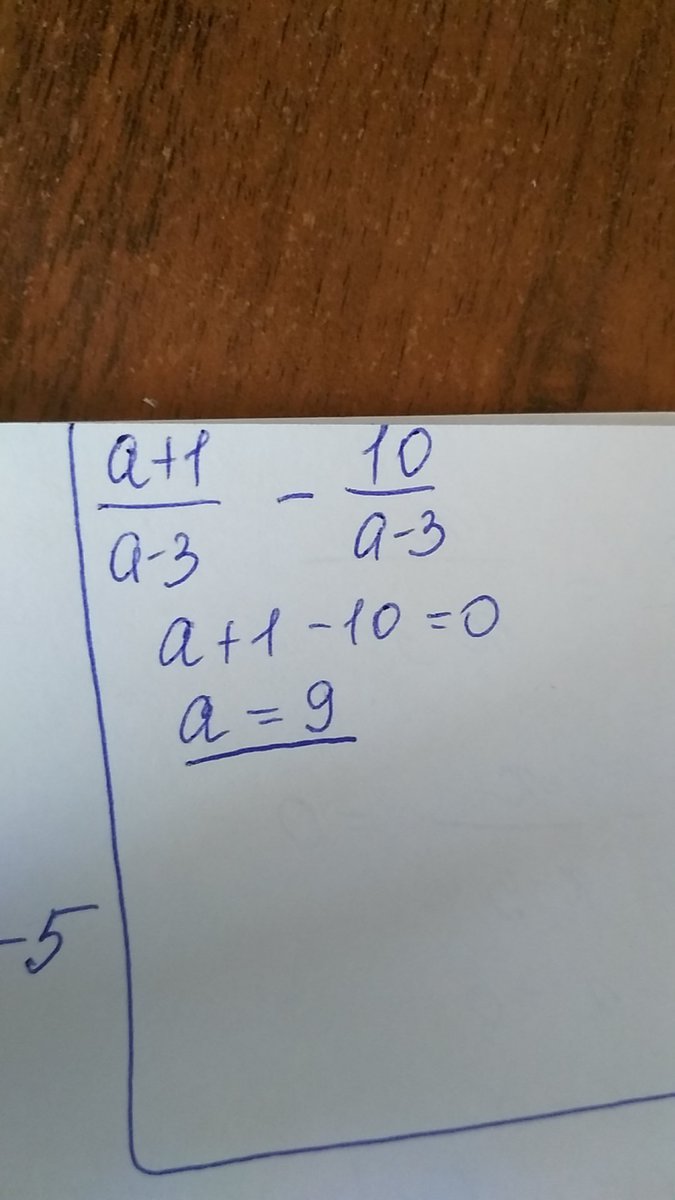 a+1 / a-3 - 10 / a-3
a+1-10=0
a = 9
-5